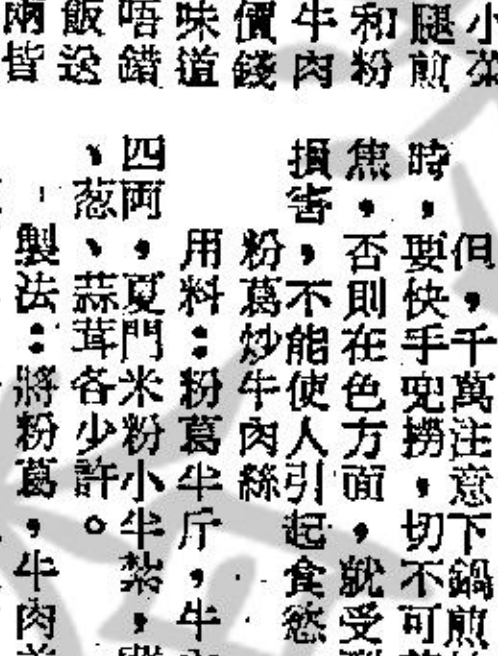 小菜
腿煎
和粉
牛肉
價錢
味道
唔錯
飯送
兩皆
但，千萬注意下鍋煎
時，要快手兜撈，切不可
焦，否則在色方面，就受
損害，不能使人引起食慾
粉葛炒牛肉絲
用料：粉葛半斤，牛
四両，夏門米粉小半紮，
、葱、蒜茸各少許。
製法：將粉葛，牛肉